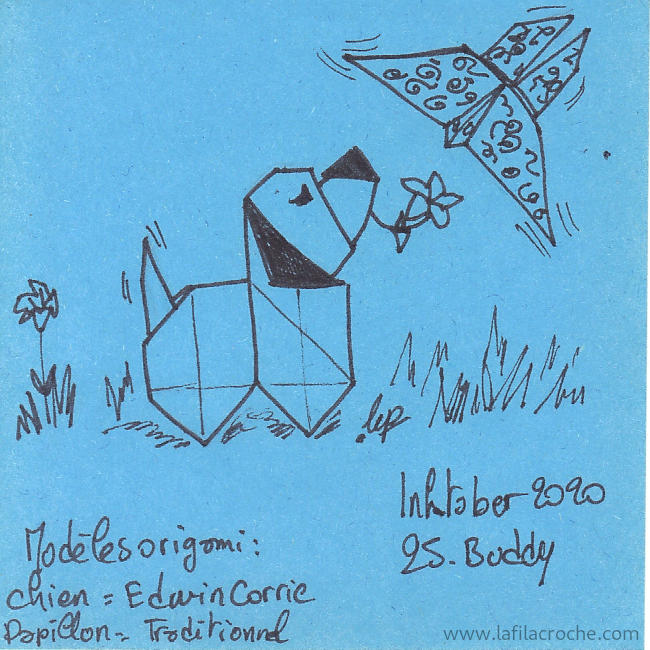 lep
Inktober 2020
25. Buddy
Modèles origami :
chien = Edwin Corrie
Papillon = Traditionnel
www.lafilacroche.com